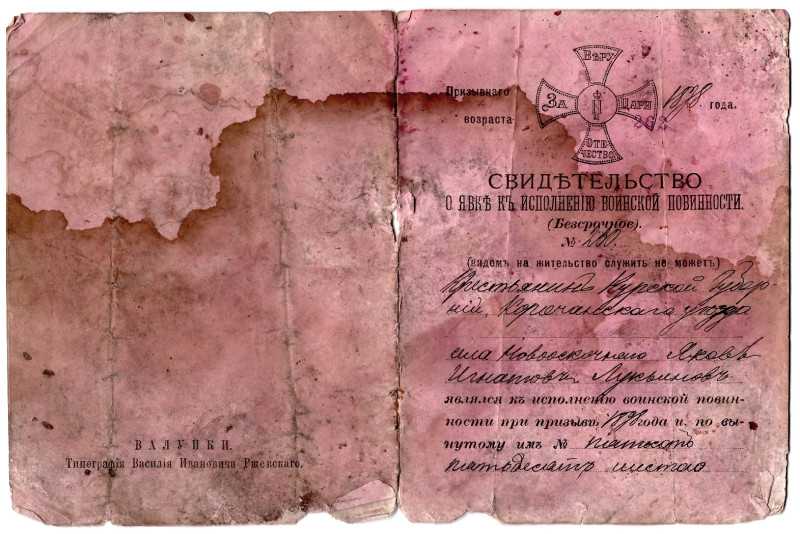 ВАЛУЙКИ.
Типографія Василія Ивановича Ржевскаго.
Призывнаго
возраста
ВѢРУ
ЗА
ЦАРИ
ОТЕ
ЧЕСТВО
1898 года.
262
СВИДѢТЕЛЬСТВО
О ЯВКѢ КЪ ИСПОЛНЕНІЮ ВОИНСКОЙ ПОВИННОСТИ.
(Безсрочное).
№ 260.
(видомъ на жительство служить не можетъ)
Крестьянинъ Курской Губер-
ніи, Корочанскаго уѣзда
села Яковъ
Игнатовъ Лукьяновъ
являлся къ исполненію воинской повин-
ности при призывѣ 1898 года и, по вы-
нутому имъ № пятьсотъ
пятьдесятъ шестао